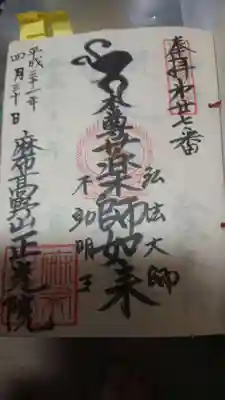 奉拝 第廿七番
弘法大師
本尊 薬師如来
不動明王
平成三十一年
四月三十日
麻布高野山正光院